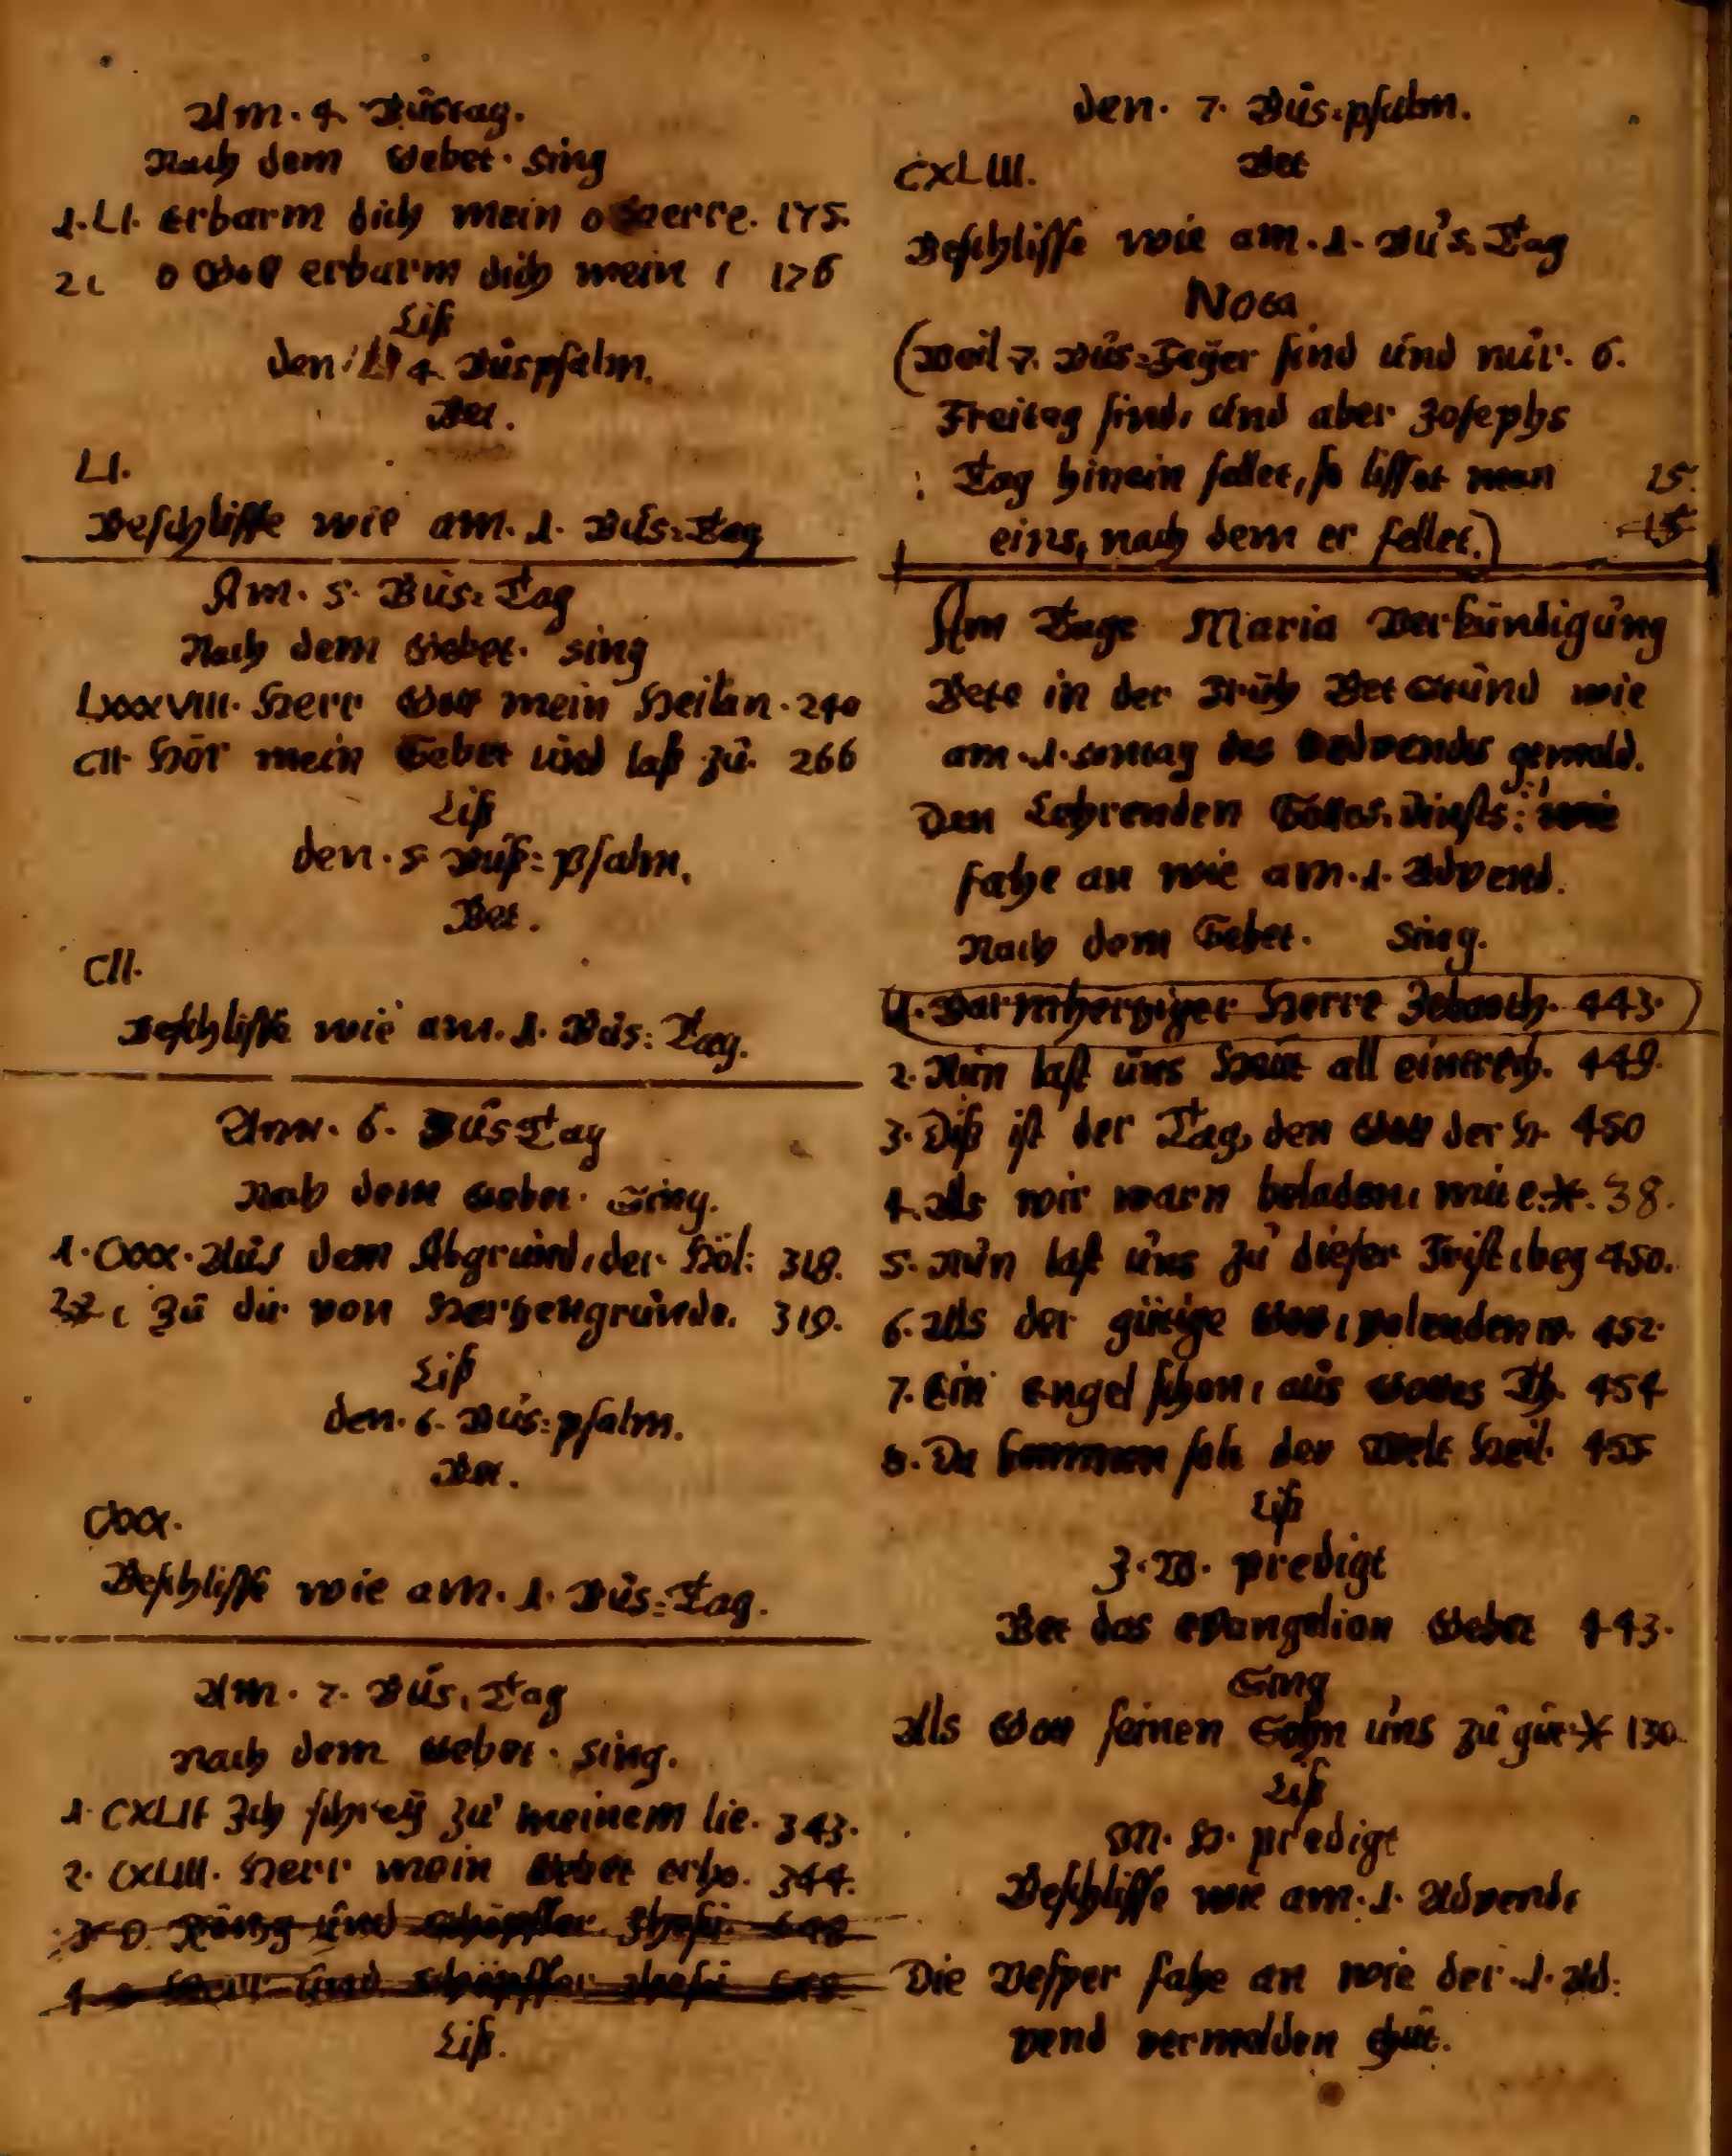 Am. 4. Büstag.
Nach dem Gebet. Sing
1. LI. Erbarm dich mein o Herre. 175.
2 ( O Gott erbarm dich mein ( 176
Liß
den 4. Büspsalm.
Bet.
LI.
Beschlisse wie am. 1. Büs=Tag
Am. 5. Büs=Tag
Nach dem Gebet. sing
LXXXVIII. Herr Gott mein Heilan. 240
CII. Hör mein Gebet und laß zü. 266
Liß
den. 5 Büß=Psalm.
Bet.
CII.
Beschlisse wie am. 1. Büs: Tag.
Am. 6. Büs Tag
Nach dem Gebet. Sing.
1. CXXX. Aüs dem Abgründ, der Höl: 318.
2 ( Zü dir von Herzengründe. 319.
Liß
den. 6. Büs=psalm.
Bet.
CXXX.
Beschlisse wie am. 1. Büs=Tag.
Am. 7. Büs, Tag
nach dem Gebet. sing.
1. CXLII Ich schreÿ zü meinem lie. 343.
2. CXLIII. Herr mein Gebet erhö. 344.
3 O König ünd Schöpffer Jhesu
4 Herr ünd Schöpffer Jhesu
Liß.
den. 7. Büs=psalm.
CXLIII. Bet
Beschlisse wie am. 1. Bü's. Tag
Nota
(Weil 7. Büs=Feÿer sind ünd nür. 6.
Freitag sind, ünd aber Josephs
Tag hinein fellet, so lisset man 15.
eins, nach dem er fellet.) 15
Am Tage Maria Verkündigüng
Bete in der Früh Bet Stünd wie
am. 1. sontag des Advendts gemeld.
Den Lehrenden Gottes. diensts: wie
fahe an wie am. 1. Advend.
Nach dem Gebet. Sing.
1. Barmherziger Herre Zebaoth. 443.
2. Nün last üns Heüt all eintrech. 449.
3. Diß ist der Tag, den Gott der H. 450
4. Als wir warn beladen, mit e.* 38.
5. Nün last üns zü dieser Frist, beg 450.
6. Als der gütige Gott, volenden w. 452.
7. Ein engel schon, aüs Gottes Th. 454
8. Da kommen solt der Welt Heil. 455
Liß
J. W. predigt
Bet das Evangelion Gebet 443.
Sing
Als Gott seinen Sohn üns zü güt * 130
Liß
M. H. predigt
Beschlisse wie am. 1. Advendt
Die Vesper fahe an wie der. 1. Ad:
vend vermelden thüt.